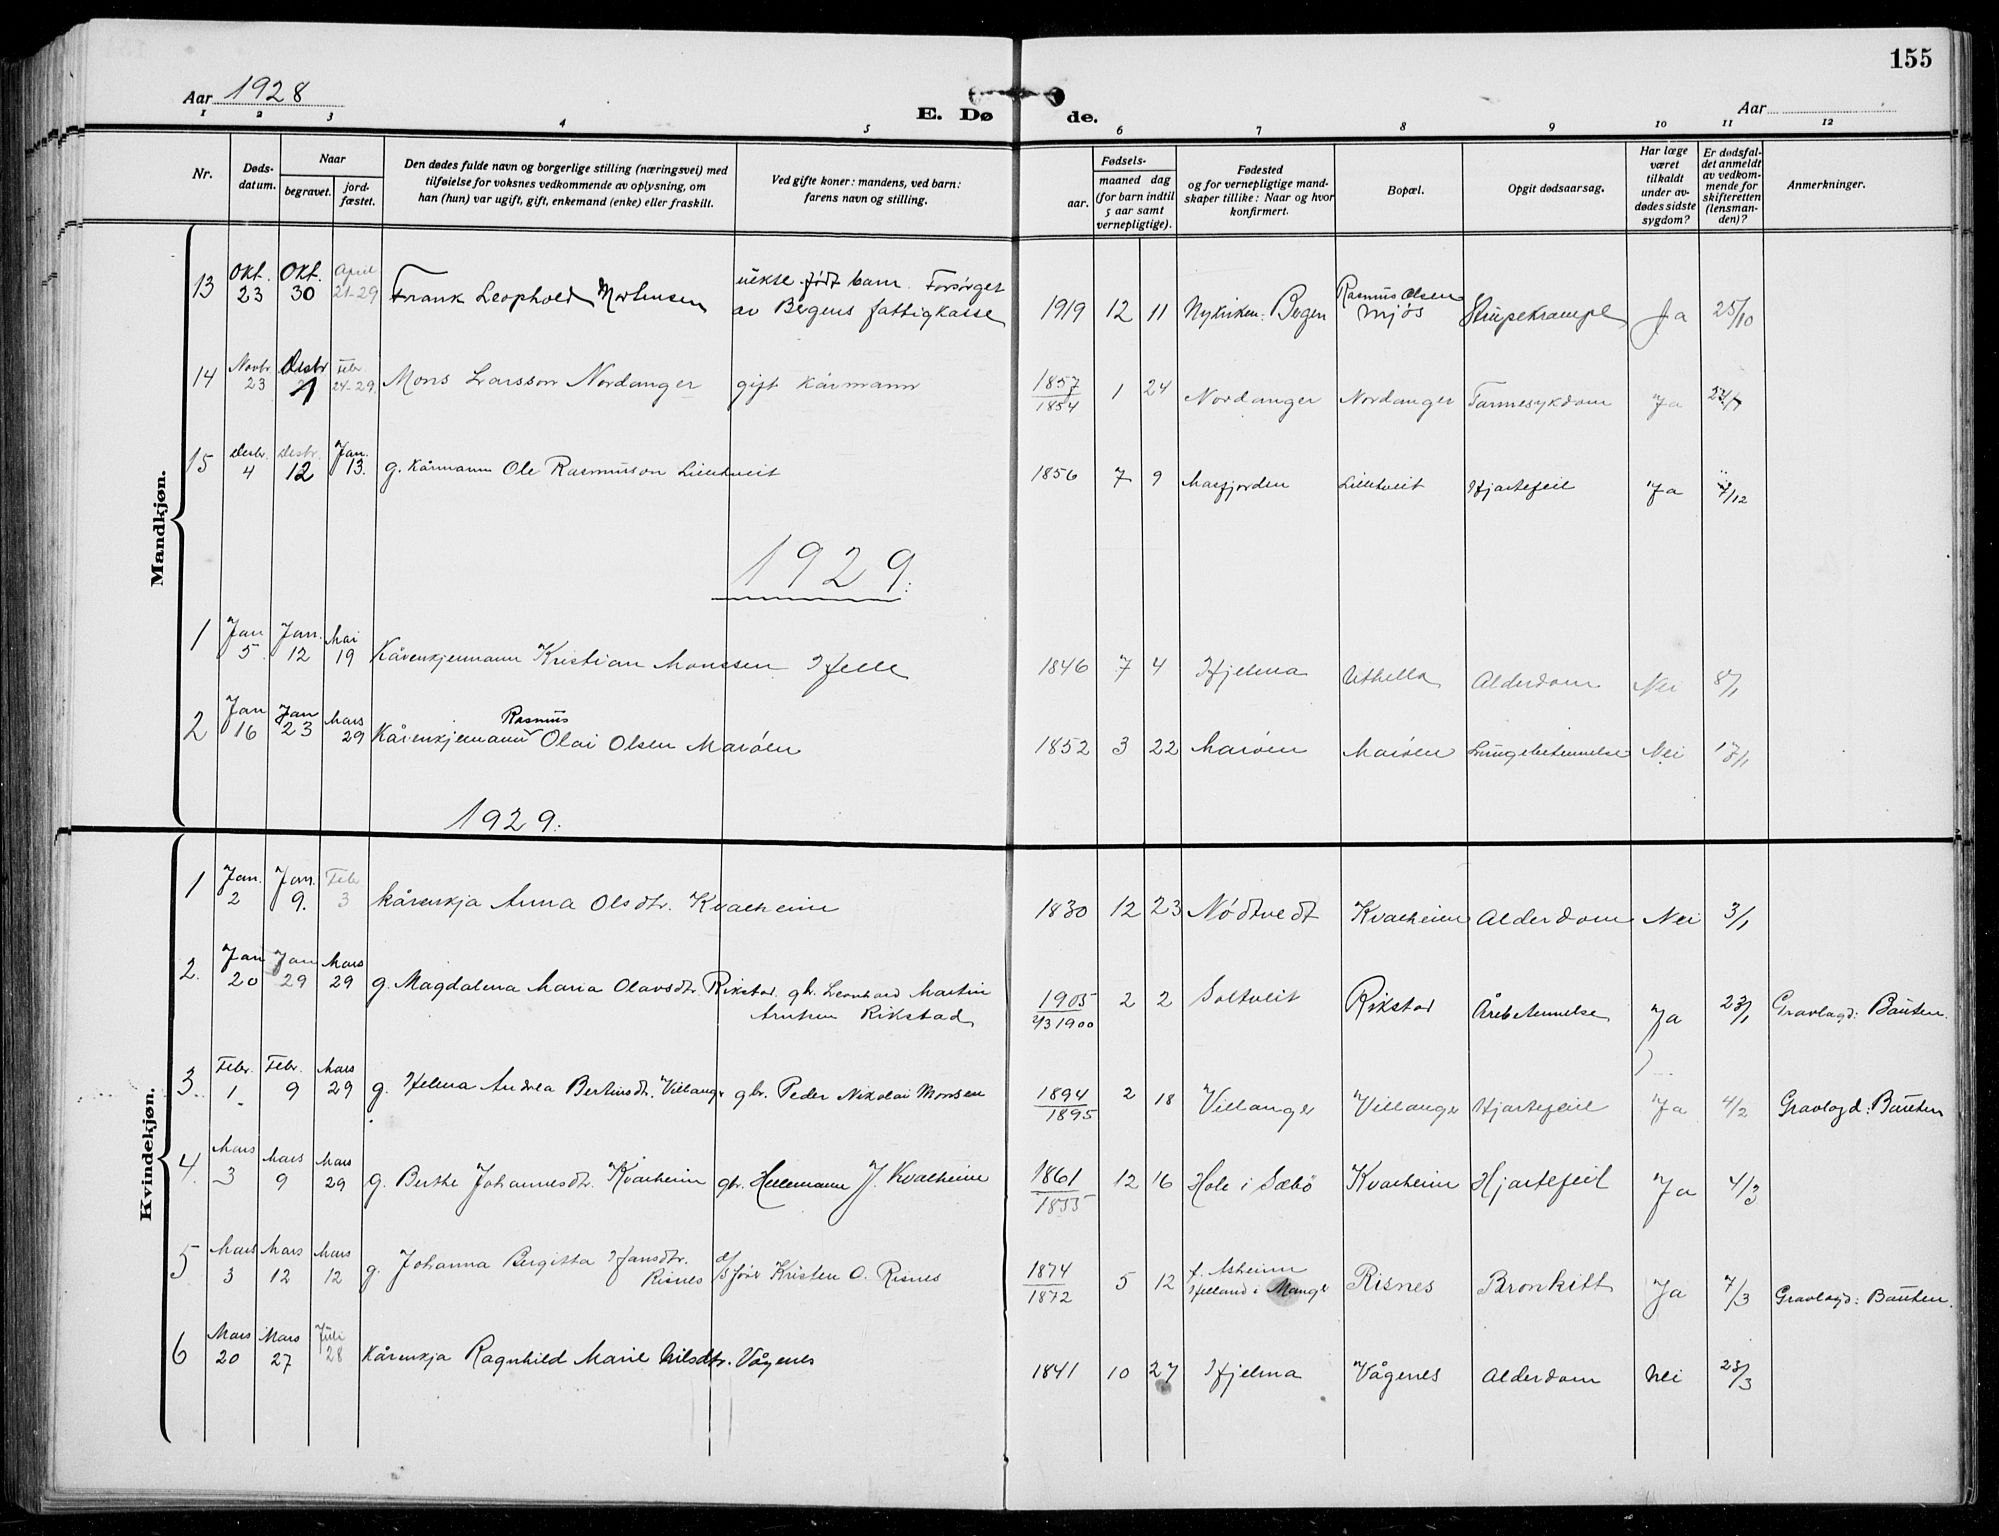 155
Aar 1928
E. Døde.
Aar
1 2 3 4 5 6 7 8 9 10 11 12
Nr.
Dødsdatum.
Naar
begravet.
jordfæstet.
Den dødes fulde navn og borgerlige stilling (næringsvei) med
tilføielse for voksnes vedkommende av oplysning, om
han (hun) var ugift, gift, enkemand (enke) eller fraskilt.
Ved gifte koner: mandens, ved barn:
farens navn og stilling.
Fødsels-
aar.
maaned dag
(for barn indtil
5 aar samt
vernepligtige).
Fødested
og for vernepligtige mand-
skaper tillike: Naar og hvor
konfirmert.
Bopæl.
Opgit dødsaarsag.
Har læge
været
tilkaldt
under av-
dødes sidste
sygdom?
Er dødsfal-
det anmeldt
av vedkom-
mende for
skifteretten
(lensman-
den)?
Anmerkninger.
Mandkjøn.
13 Okt. 23 Okt. 30 April 21-29 Frank Leophold Mortensen uekte født barn. Forsørget av Bergens fattigkasse 1919 12 11 Nykirken: Bergen Rasmus Olsen Mjøs Strupekrampe Ja 25/10
14 Novbr 23 Desbr 1 Febr. 24-29. Mons Larsson Nordanger gift kårmann 1857 1854 1 24 Nordanger Nordanger Tarmesykdom Ja
15 Desbr. 4 Desbr. 12 Jan. 13. g. kårmann Ole Rasmuson Lilletveit 1856 7 9 Masfjorden Lilletveit Hjartefeil Ja 7/12
1929.
1 Jan 5 Jan. 12 Mai 19 Kårenkjemann Kristian Monssen Helle 1846 7 4 Hjelma Uthella Alderdom Nei 8/1
2 Jan 16 Jan 23 Mars 29 Kårenkjemann Rasmus Olai Olsen Marøen 1852 3 22 Marøen Marøen Lungebetennelse Nei 17/1
1929.
Kvindekjøn.
1 Jan. 2 Jan. 9. Feb 3 kårenkja Anna Olsdtr. Kvalheim 1830 12 23 Nødtvedt Kvalheim Alderdom Nei 3/1
2. Jan 20 Jan 29 Mars 29 g. Magdalena Maria Olavsdtr. Rikstad. gbr. Leonhard Martin Arntsen Rikstad 1905 2/3 1900 2 2 Soltveit Rikstad Årebetennelse Ja 23/1 Gravlagd: Bauten.
3. Febr. 1 Febr. 9 Mars 29 g. Helma Andrea Bertinsdtr. Villanger gbr. Peder Nikolai Monsen 1894 1895 2 18 Villanger Villanger Hjartefeil Ja 4/2 Gravlagd: Bauten
4. Mars 3 Mars 9 Mars 29 g. Berthe Johannesdtr. Kvalheim gbr. Hellemann J. Kvalheim 1861 1855 12 16 Hole i Sæbø Kvalheim Hjartefeil Ja 4/3
5 Mars 3 Mars 12 Mars 12 g. Johanna Bergitta Hansdtr. Risnes Kristen O. Risnes 1874 1872 5 12 f. Askeim Helland i Manger Risnes Bronkitt Ja 7/3 Gravlagd: Bauten.
6 Mars 20 Mars 27 Juli 28 Kårenkja Ragnhild Marie Nilsdtr. Vågenes 1841 10 27 Hjelma Vågenes Alderdom Nei 23/3